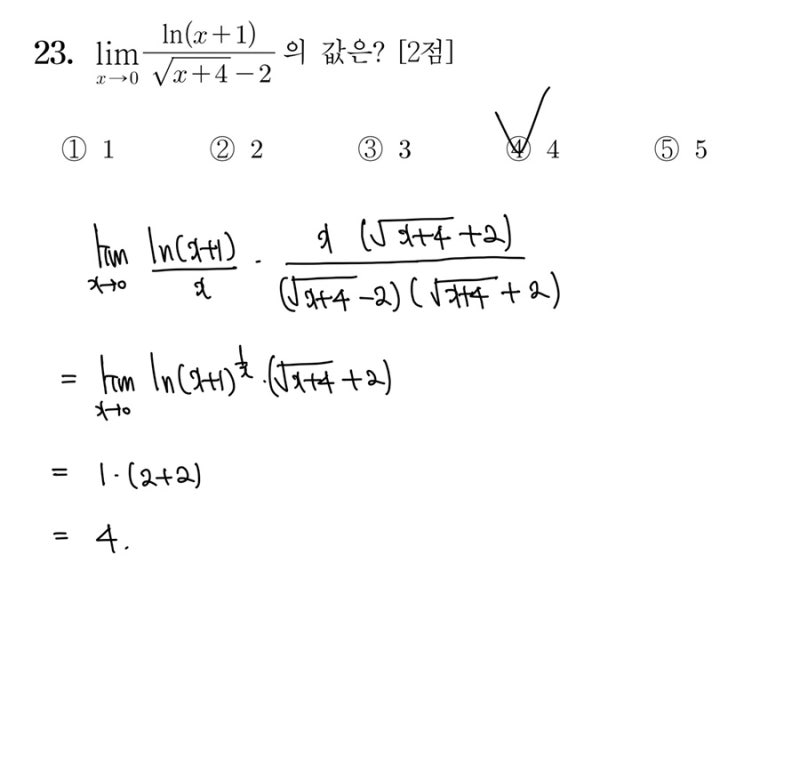 23. lim_{x→0} ln(x+1)/(√(x+4)−2) 의 값은? [2점]
① 1 ② 2 ③ 3 ④ 4 ⑤ 5
lim_{x→0} ln(x+1)/x · x(√(x+4)+2)/((√(x+4)−2)(√(x+4)+2))
= lim_{x→0} ln(x+1)^{1/x} · (√(x+4)+2)
= 1·(2+2)
= 4.